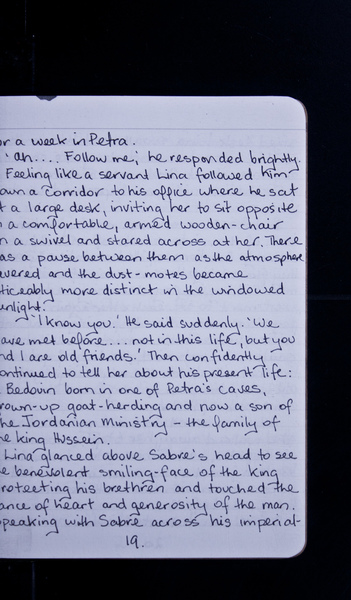 or a week in Petra.
'ah.... Follow me,' he responded brightly.
Feeling like a servant Lina followed him
own a corridor to his office where he sat
t a large desk, inviting her to sit opposite
n a comfortable, armed wooden-chair
n a swivel and stared across at her. There
as a pause between them as the atmosphere
vered and the dust-motes became
ticeably more distinct in the windowed
unlight.
'I know you.' He said suddenly. 'We
ave met before... not in this life, but you
nd I are old friends.' Then confidently
ontinued to tell her about his present life:
Bedouin born in one of Petra's caves,
rown-up goat-herding and now a son of
he Jordanian Ministry – the family of
he king Hussein.
Lina glanced above Sabre's head to see
e benevolent smiling-face of the king
rotecting his brethren and touched the
ance of heart and generosity of the man.
peaking with Sabre across his imperial-
19.